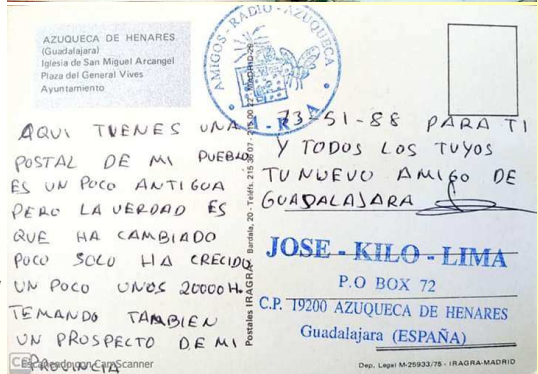 AZUQUECA DE HENARES
(Guadalajara)
Iglesia de San Miguel Arcangel
Plaza del General Vives
Ayuntamiento
AQUI TIENES UNA
POSTAL DE MI PUEBLO
ES UN POCO ANTIGUA
PERO LA VERDAD ES
QUE HA CAMBIADO
POCO SOLO HA CRECIDO
UN POCO UNOS 20000 H.
TEMANDO TAMBIEN
UN PROSPECTO DE MI
PROVINCIA
Escaneado con CamScanner
Postales IRAGRA - Bardala, 20 - Teléfs. 215 38 07 - 215 00 27 MADRID-28
AMIGOS - RADIO - AZUQUECA
A - R - A
73-51-88 PARA TI
Y TODOS LOS TUYOS
TU NUEVO AMIGO DE
GUADALAJARA
JOSE - KILO - LIMA
P.O BOX 72
C.P. 19200 AZUQUECA DE HENARES
Guadalajara (ESPAÑA)
Dep. Legal M-25933/75 - IRAGRA-MADRID